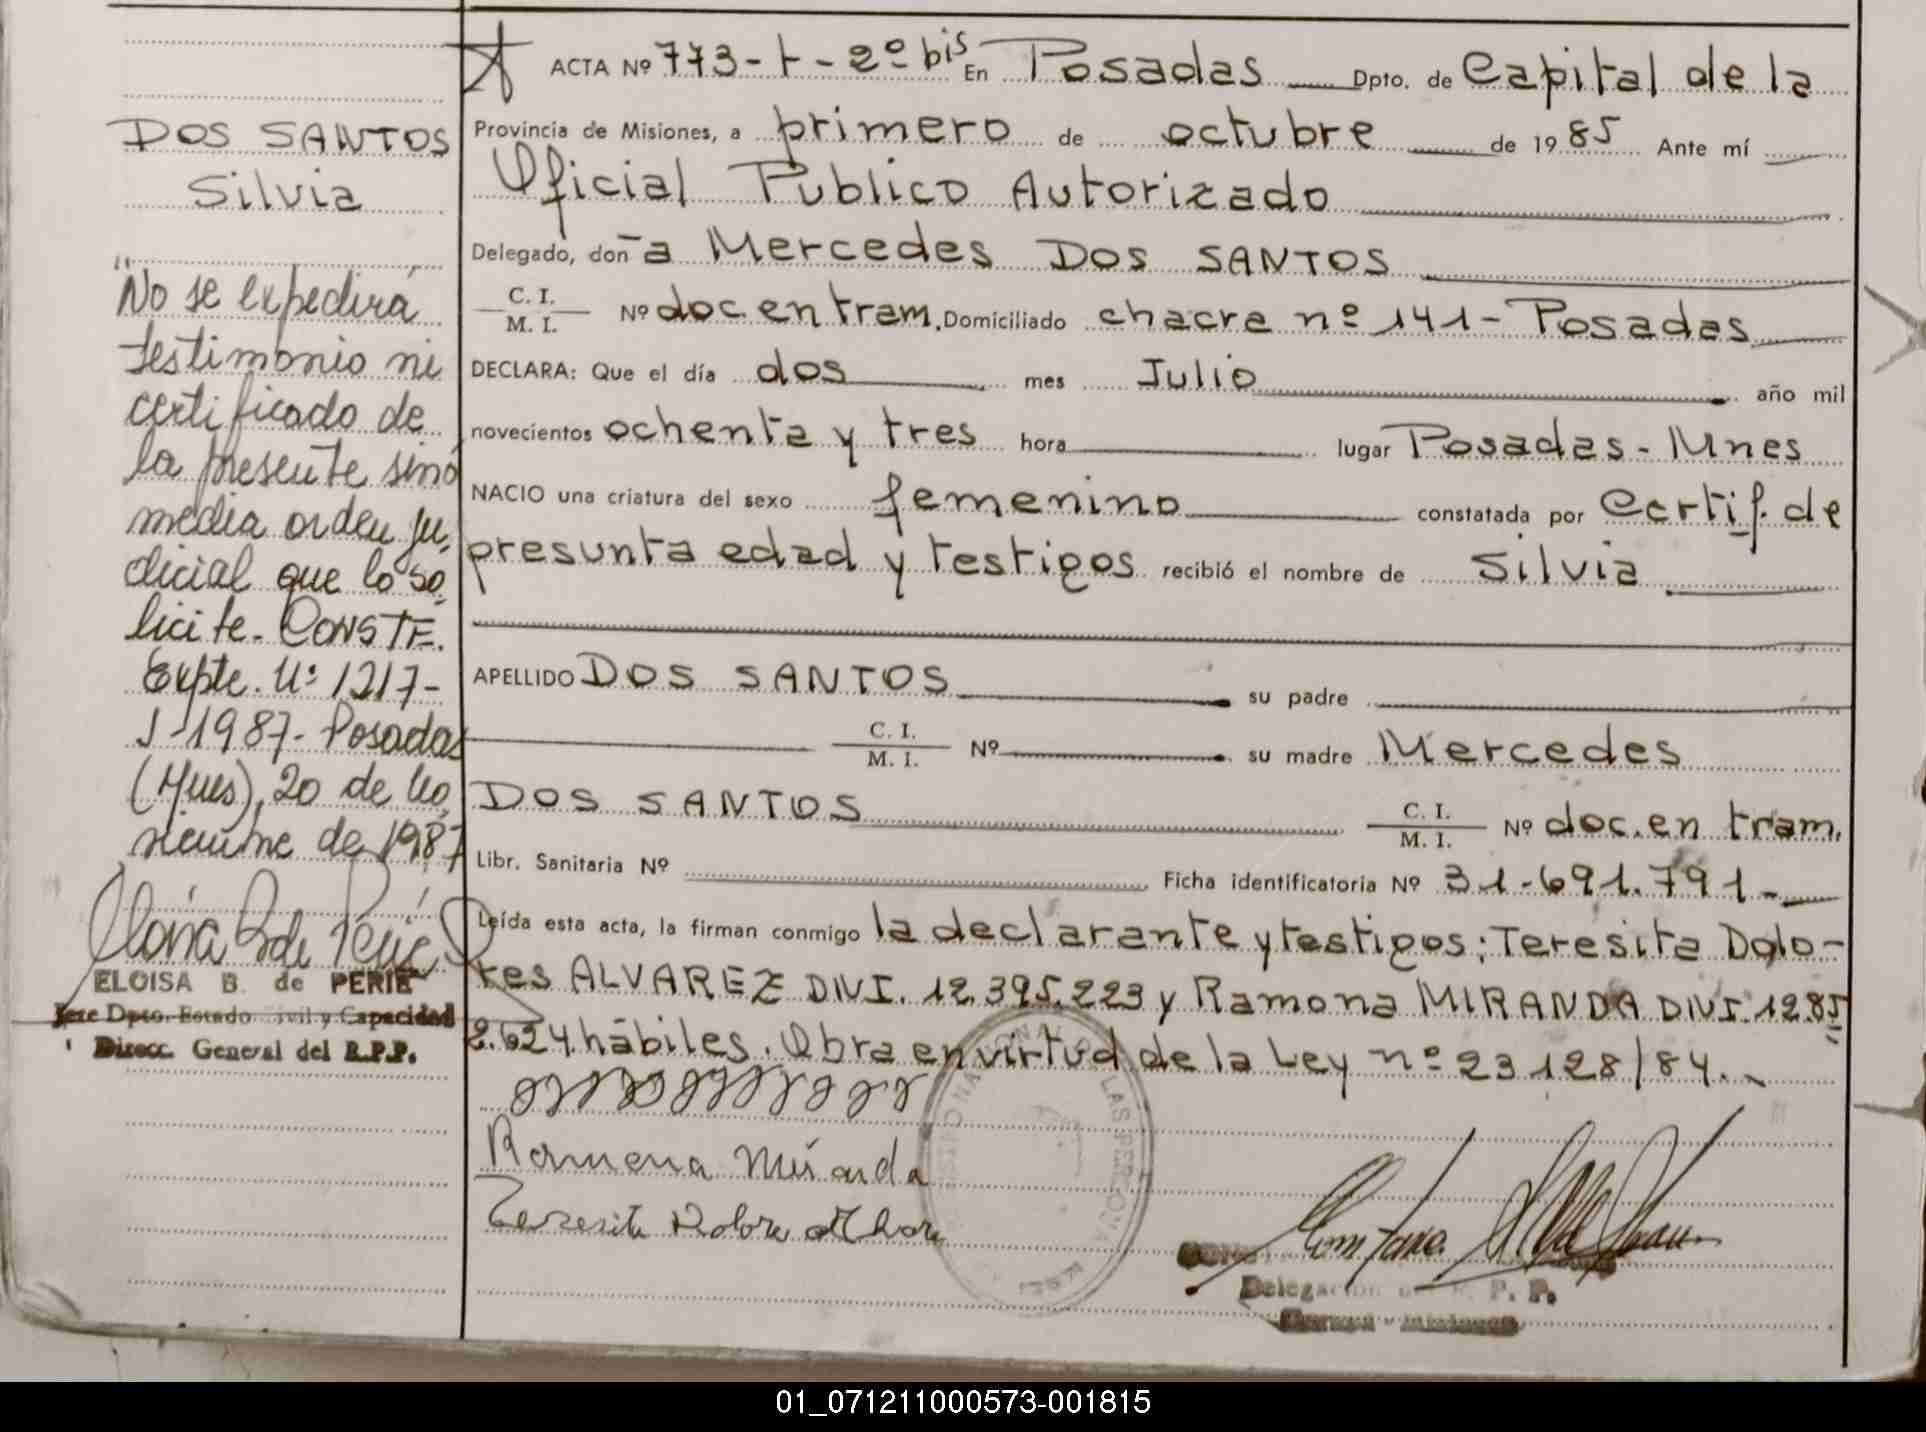 DOS SANTOS
Silvia
"No se expedirá
testimonio ni
certificado de
la presente sinó
media orden ju-
dicial que lo so-
licite. CONSTE.
Expte. Nº 1217-
J-1987- Posadas
(Mnes), 20 de no-
viembre de 1987
ELOISA B. de PERIE
Jefe Dpto. Estado Civil y Capacidad
Direcc. General del R.P.P.
ACTA Nº 773-t-2º bis En Posadas Dpto. de Capital de la
Provincia de Misiones, a primero de octubre de 1985 Ante mí
Oficial Publico Autorizado
Delegado, doña Mercedes DOS SANTOS
C. I.
M. I. Nº doc en tram. Domiciliado chacra nº 141- Posadas
DECLARA: Que el día dos mes Julio año mil
novecientos ochenta y tres hora lugar Posadas- Mnes
NACIO una criatura del sexo femenino constatada por Certif. de
presunta edad y testigos recibió el nombre de Silvia
APELLIDO DOS SANTOS su padre
C. I.
M. I. Nº su madre Mercedes
DOS SANTOS C. I.
M. I. Nº doc. en tram.
Libr. Sanitaria Nº Ficha identificatoria Nº 31-691.791-
Leída esta acta, la firman conmigo la declarante y testigos: Teresita Dolo-
res ALVAREZ DNI. 12.395.223 y Ramona MIRANDA DNI. 12.85
2.624 hábiles. Obra en virtud de la Ley nº 23128/84.
Ramona Miranda
Teresita Dolore
Delegación R. P. P.
01_071211000573-001815